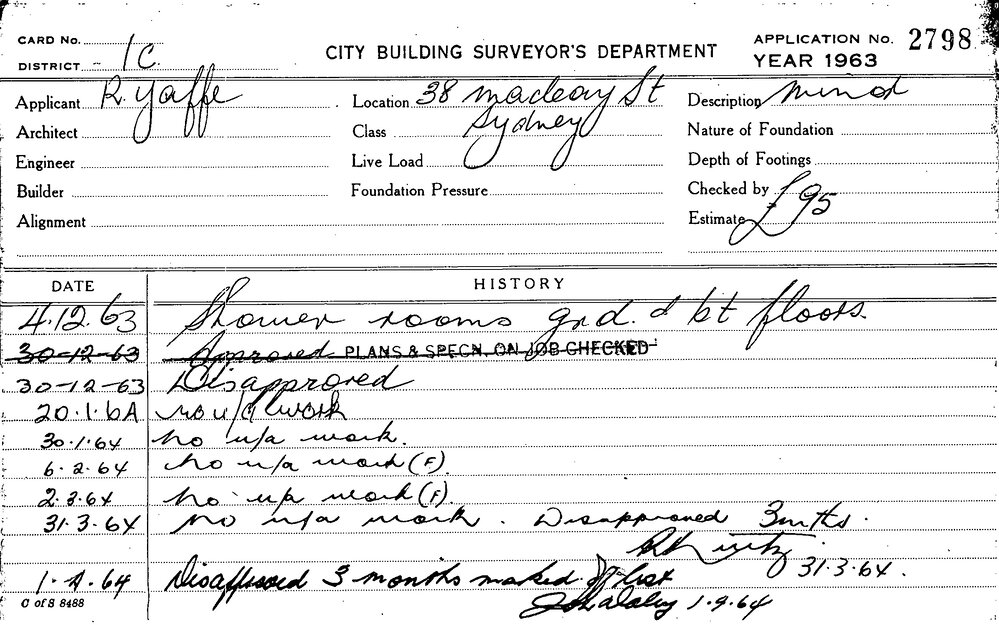 CARD No.
DISTRICT - 1C.
CITY BUILDING SURVEYOR'S DEPARTMENT
APPLICATION No. 2798
YEAR 1963
Applicant R. Yaffe
Architect
Engineer
Builder
Alignment
Location 38 macleay St
Sydney
Class
Live Load
Foundation Pressure
Description
Nature of Foundation
Depth of Footings
Checked by
Estimate £95
DATE HISTORY
4.12.63 Shower rooms grd. & bt floors.
30-12-63 Approved PLANS & SPECN. ON JOB CHECKED
30-12-63 Disapproved
20.1.64 no u/a work
30.1.64 no u/a work.
6.2.64 no u/a work (F).
2.3.64 no u/a work (F).
31.3.64 no u/a work. Disapproved 3mths.
31.3.64.
64 Disapproved 3 months marked off list
64
C of S 8488